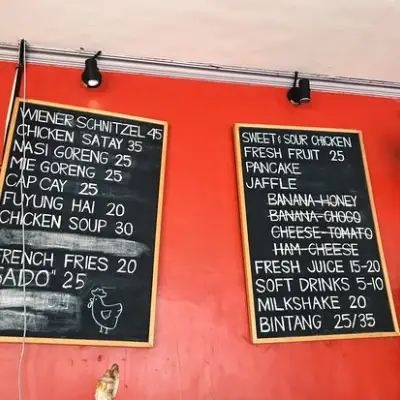 WIENER SCHNITZEL 45
CHICKEN SATAY 35
NASI GORENG 25
MIE GORENG 25
CAP CAY 25
FUYUNG HAI 20
CHICKEN SOUP 30
FRENCH FRIES 20
SADO" 25
SWEET & SOUR CHICKEN
FRESH FRUIT 25
PANCAKE
JAFFLE
BANANA-HONEY
BANANA-CHOCO
CHEESE-TOMATO
HAM-CHEESE
FRESH JUICE 15-20
SOFT DRINKS 5-10
MILKSHAKE 20
BINTANG 25/35